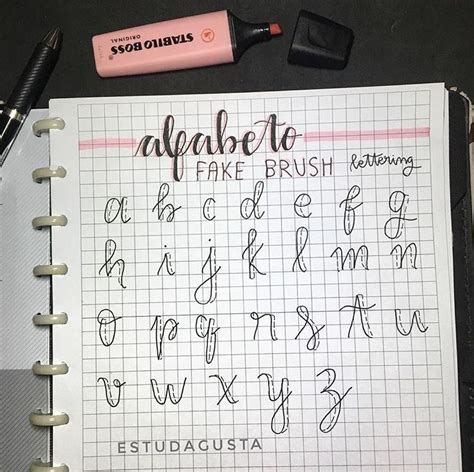 STABILO BOSS
ORIGINAL
alfabeto
FAKE BRUSH lettering
a b c d e f g
h i j k l m n
o p q r s t u
v w x y z
ESTUDAGUSTA